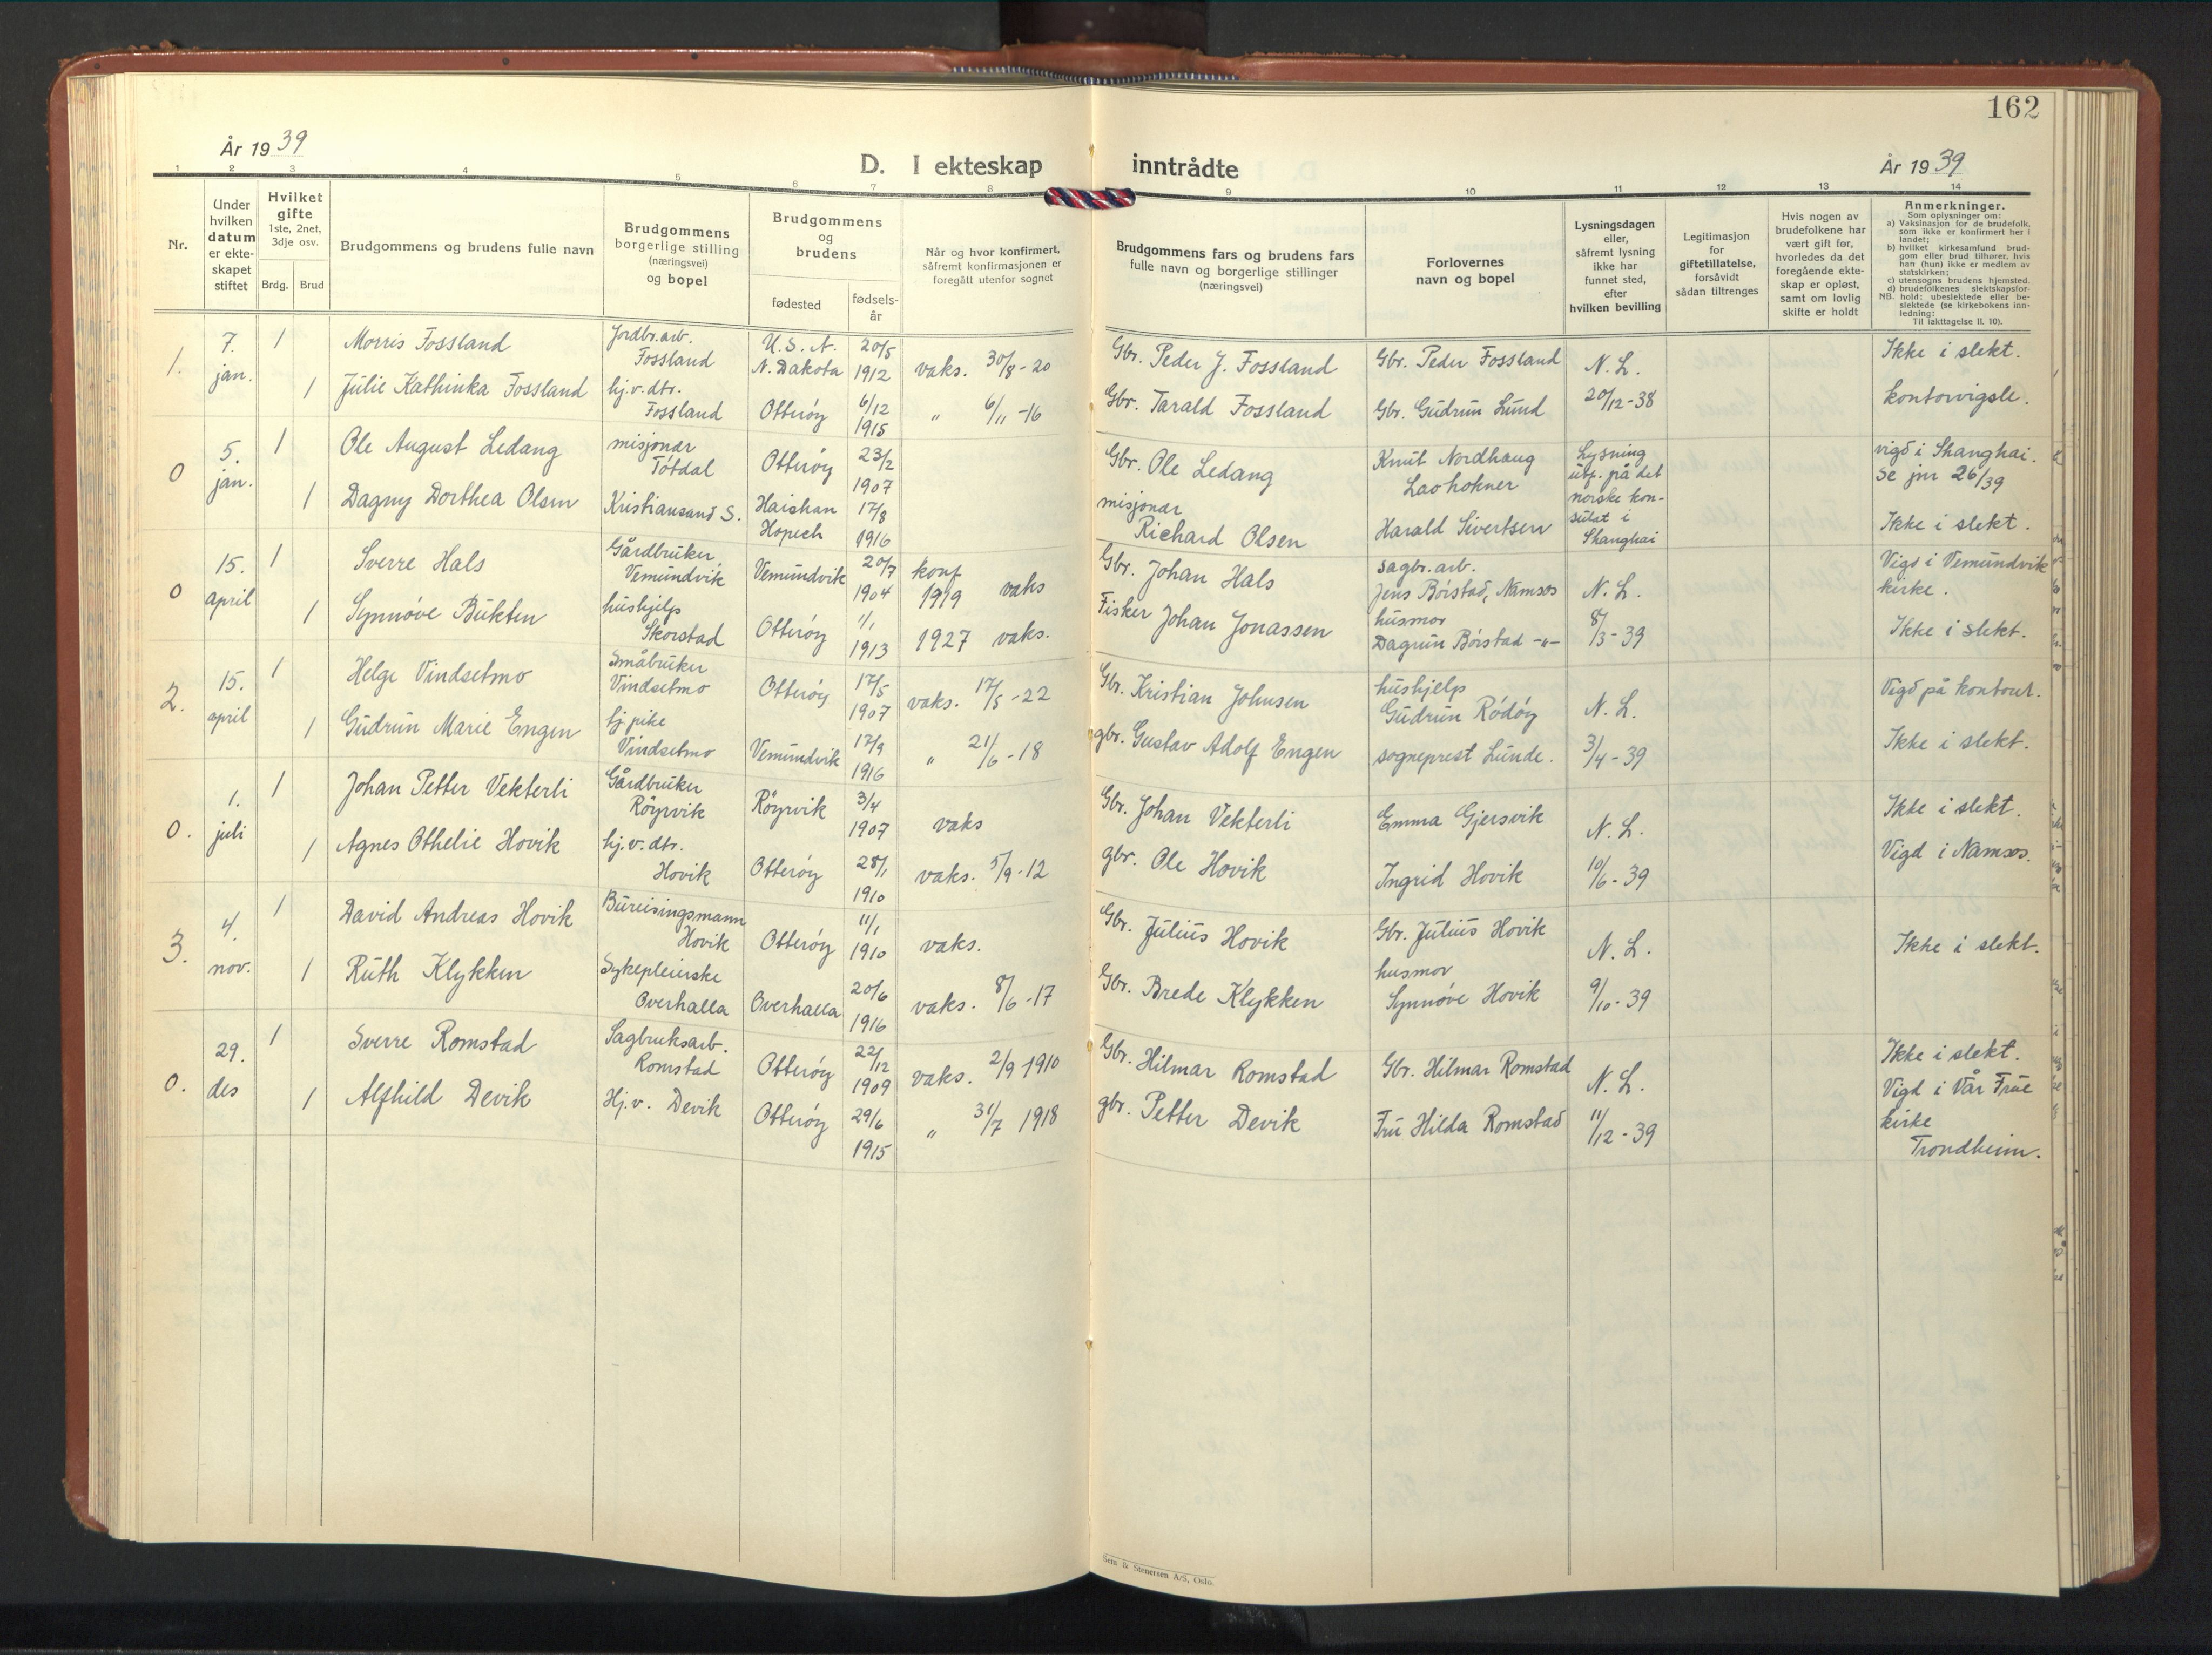 162
År 1939
D. I ekteskap inntrådte
År 1939
1 2 3 4 5 6 7 8 9 10 11 12 13 14
Nr.
Under hvilken datum er ekteskapet stiftet
Hvilket gifte 1ste, 2net, 3dje osv.
Brdg. Brud
Brudgommens og brudens fulle navn
Brudgommens borgerlige stilling (næringsvei) og bopel
Brudgommens og brudens
fødested
fødselsår
Når og hvor konfirmert, såfremt konfirmasjonen er foregått utenfor sognet
Brudgommens fars og brudens fars fulle navn og borgerlige stillinger (næringsvei)
Forlovernes navn og bopel
Lysningsdagen eller, såfremt lysning ikke har funnet sted, efter hvilken bevilling
Legitimasjon for giftetillatelse, forsåvidt sådan tiltrenges
Hvis nogen av brudefolkene har vært gift før, hvorledes da det foregående ekteskap er opløst, samt om lovlig skifte er holdt
Anmerkninger.
Som oplysninger om:
a) Vaksinasjon for de brudefolk, som ikke er konfirmert her i landet;
b) hvilket kirkesamfund brudgom eller brud tilhører, hvis han (hun) ikke er medlem av statskirken;
c) utensogns brudens hjemsted.
d) brudefolkenes slektskapsforhold: ubeslektede eller beslektede (se kirkebokens innledning:
NB. Til iakttagelse II. 10).
1. 7. jan. 1 Morris Fossland Jordbr.arb. Fossland U.S.A. N. Dakota 20/5 1912 vaks. 30/8-20 Gbr. Peder J. Fossland Gbr. Peder Fossland N. L. Ikke i slekt.
1 Julie Kathinka Fossland hj.v.dtr. Fossland Otterøy 6/12 1915 " 6/11-16 Gbr. Tarald Fossland Gbr. Gudrun Lund 20/12-38 kontorvigsle.
0 5. jan. 1 Ole August Ledang misjonær Tøtdal Otterøy 23/2 1907 Gbr. Ole Ledang Knut Nordhaug Laohokner Lysning utf. på det norske konsulat i Shanghai vigd i Shanghai. se jnr 26/39
1 Dagny Dorthea Olsen Kristiansand S. Haishan Hopeh 17/8 1916 misjonær Richard Olsen Harald Sivertsen Ikke i slekt.
0 15. april 1 Sverre Hals Gårdbruker Vemundvik Vemundvik 20/7 1904 konf 1919 vaks Gbr. Johan Hals sagbr.arb. Jens Børstad, Namsos N. L. Vigd i Vemundvik kirke.
1 Synnøve Bukten hushjelp Skorstad Otterøy 1/1 1913 1927 vaks. Fisker Johan Jonassen husmor Dagrun Børstad -"- 8/3-39 Ikke i slekt.
2. 15. april 1 Helge Vindsetmo Småbruker Vindsetmo Otterøy 17/5 1907 vaks. 17/5-22 Gbr. Kristian Johnsen hushjelp Gudrun Rødøy N. L. Vigd på kontoret.
1 Gudrun Marie Engen hj pike Vindsetmo Vemundvik 17/9 1916 " 21/6-18 gbr. Gustav Adolf Engen sogneprest Lunde. 3/4-39 Ikke i slekt.
0. 1. juli 1 Johan Petter Vekterli Gårdbruker Røyrvik Røyrvik 3/4 1907 vaks Gbr. Johan Vekterli Emma Gjersvik N. L. Ikke i slekt.
1 Agnes Othelie Hovik hj.v.dtr. Hovik Otterøy 28/1 1910 vaks. 5/9-12 gbr. Ole Hovik Ingrid Hovik 10/6-39 Vigd i Namsos.
3. 4. nov. 1 David Andreas Hovik Bureisingsmann Hovik Otterøy 11/1 1910 vaks. Gbr. Julius Hovik Gbr. Julius Hovik N. L. Ikke i slekt.
1 Ruth Klykken Sykepleierske Overhalla Overhalla 20/6 1916 vaks. 8/6-17 Gbr. Brede Klykken husmor Synnøve Hovik 9/10-39
0. 29. des 1 Sverre Romstad Sagbruksarb. Romstad Otterøy 22/12 1909 vaks. 2/9 1910 Gbr. Hilmar Romstad Gbr. Hilmar Romstad N. L. Ikke i slekt.
1 Alfhild Devik Hj.v. Devik Otterøy 29/6 1915 " 31/7 1918 gbr. Petter Devik Fru Hilda Romstad 11/12-39 Vigd i Vår Frue kirke Trondheim.
Sem & Stenersen A/S, Oslo.